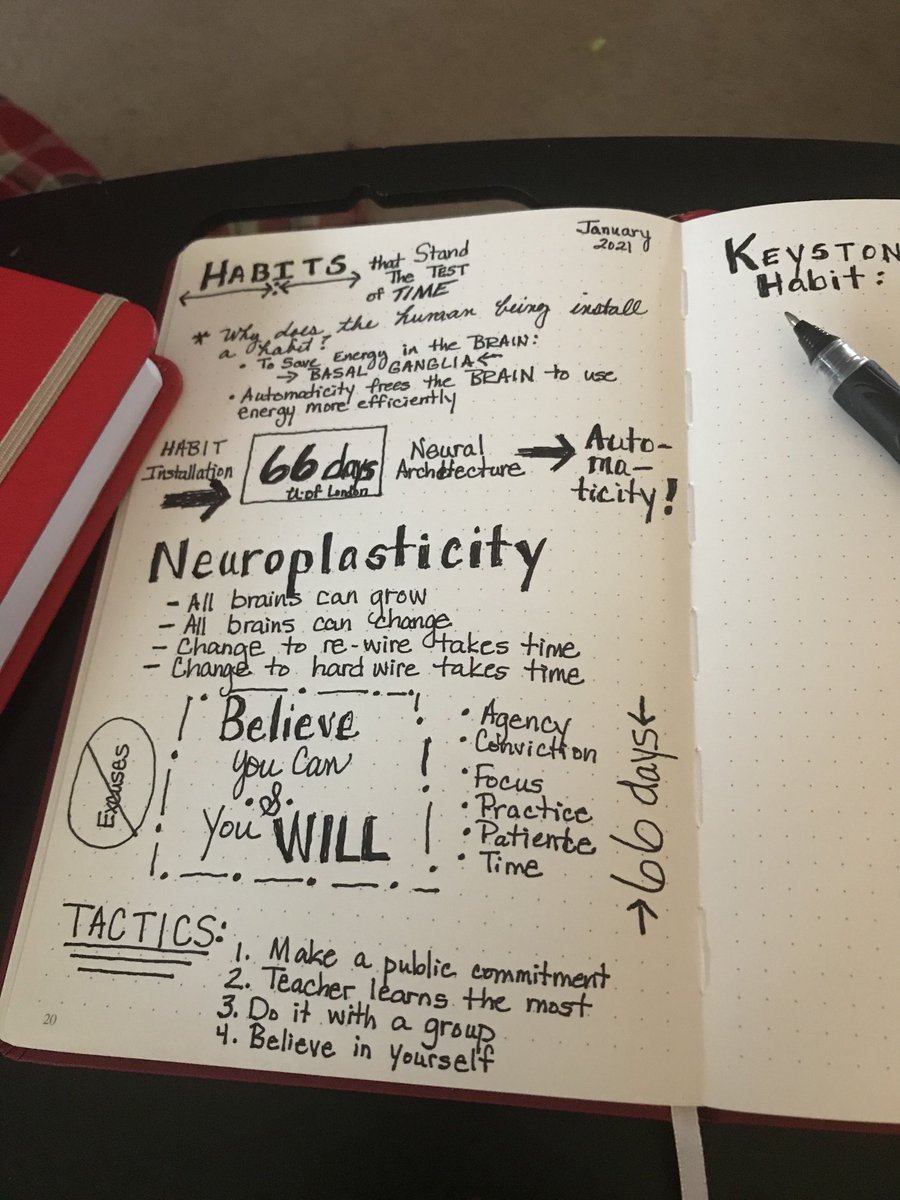 January
2021
HABITS that Stand
The TEST
of TIME
* Why does the human being install
a habit?
• To Save Energy in the BRAIN:
→ BASAL GANGLIA ←
• Automaticity frees the BRAIN to use
energy more efficiently
HABIT
Installation
66 days
U. of London
Neural
Architecture
Auto-
ma-
ticity!
Neuroplasticity
- All brains can grow
- All brains can change
- Change to re-wire takes time
- Change to hard wire takes time
Excuses
Believe
you can
&
You WILL
• Agency
• Conviction
• Focus
• Practice
• Patience
• Time
→ 66 days ←
TACTICS:
1. Make a public commitment
2. Teacher learns the most
3. Do it with a group
4. Believe in yourself
20
KEYSTON
Habit: